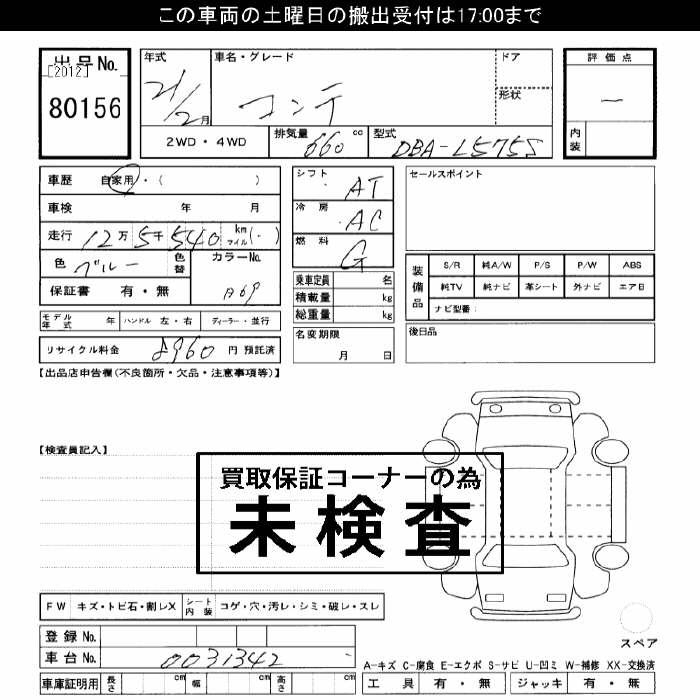 この車両の土曜日の搬出受付は17:00まで
出品No.
[2012]
80156
年式
21/2月
車名・グレード
コンテ
ドア
形状
評価点
ー
内装
2WD・4WD
排気量 660 cc
型式 DBA-L575S
車歴 自家用・( )
車検 年 月
走行 12万 5千 540 km マイル (・)
色 ブルー 色替
カラーNo.
保証書 有・無
モデル年式 年 ハンドル 左・右 ディーラー・並行
リサイクル料金 8960 円 預託済
シフト AT
冷房 AC
燃料 G
乗車定員 名
積載量 kg
総重量 kg
名変期限
月 日
セールスポイント
装備品
S/R 純A/W P/S P/W ABS
純TV 純ナビ 革シート 外ナビ エアB
ナビ型番:
後日品
【出品店申告欄(不良箇所・欠品・注意事項等)】
【検査員記入】
買取保証コーナーの為
未検査
FW キズ・トビ石・割レX
シート内装 コゲ・穴・汚レ・シミ・破レ・スレ
スペア
登録No.
車台No. 0031342
車庫証明用 長さ cm 幅 cm 高さ cm
A-キズ C-腐食 E-エクボ S-サビ U-凹ミ W-補修 XX-交換済
工具 有・無 ジャッキ 有・無